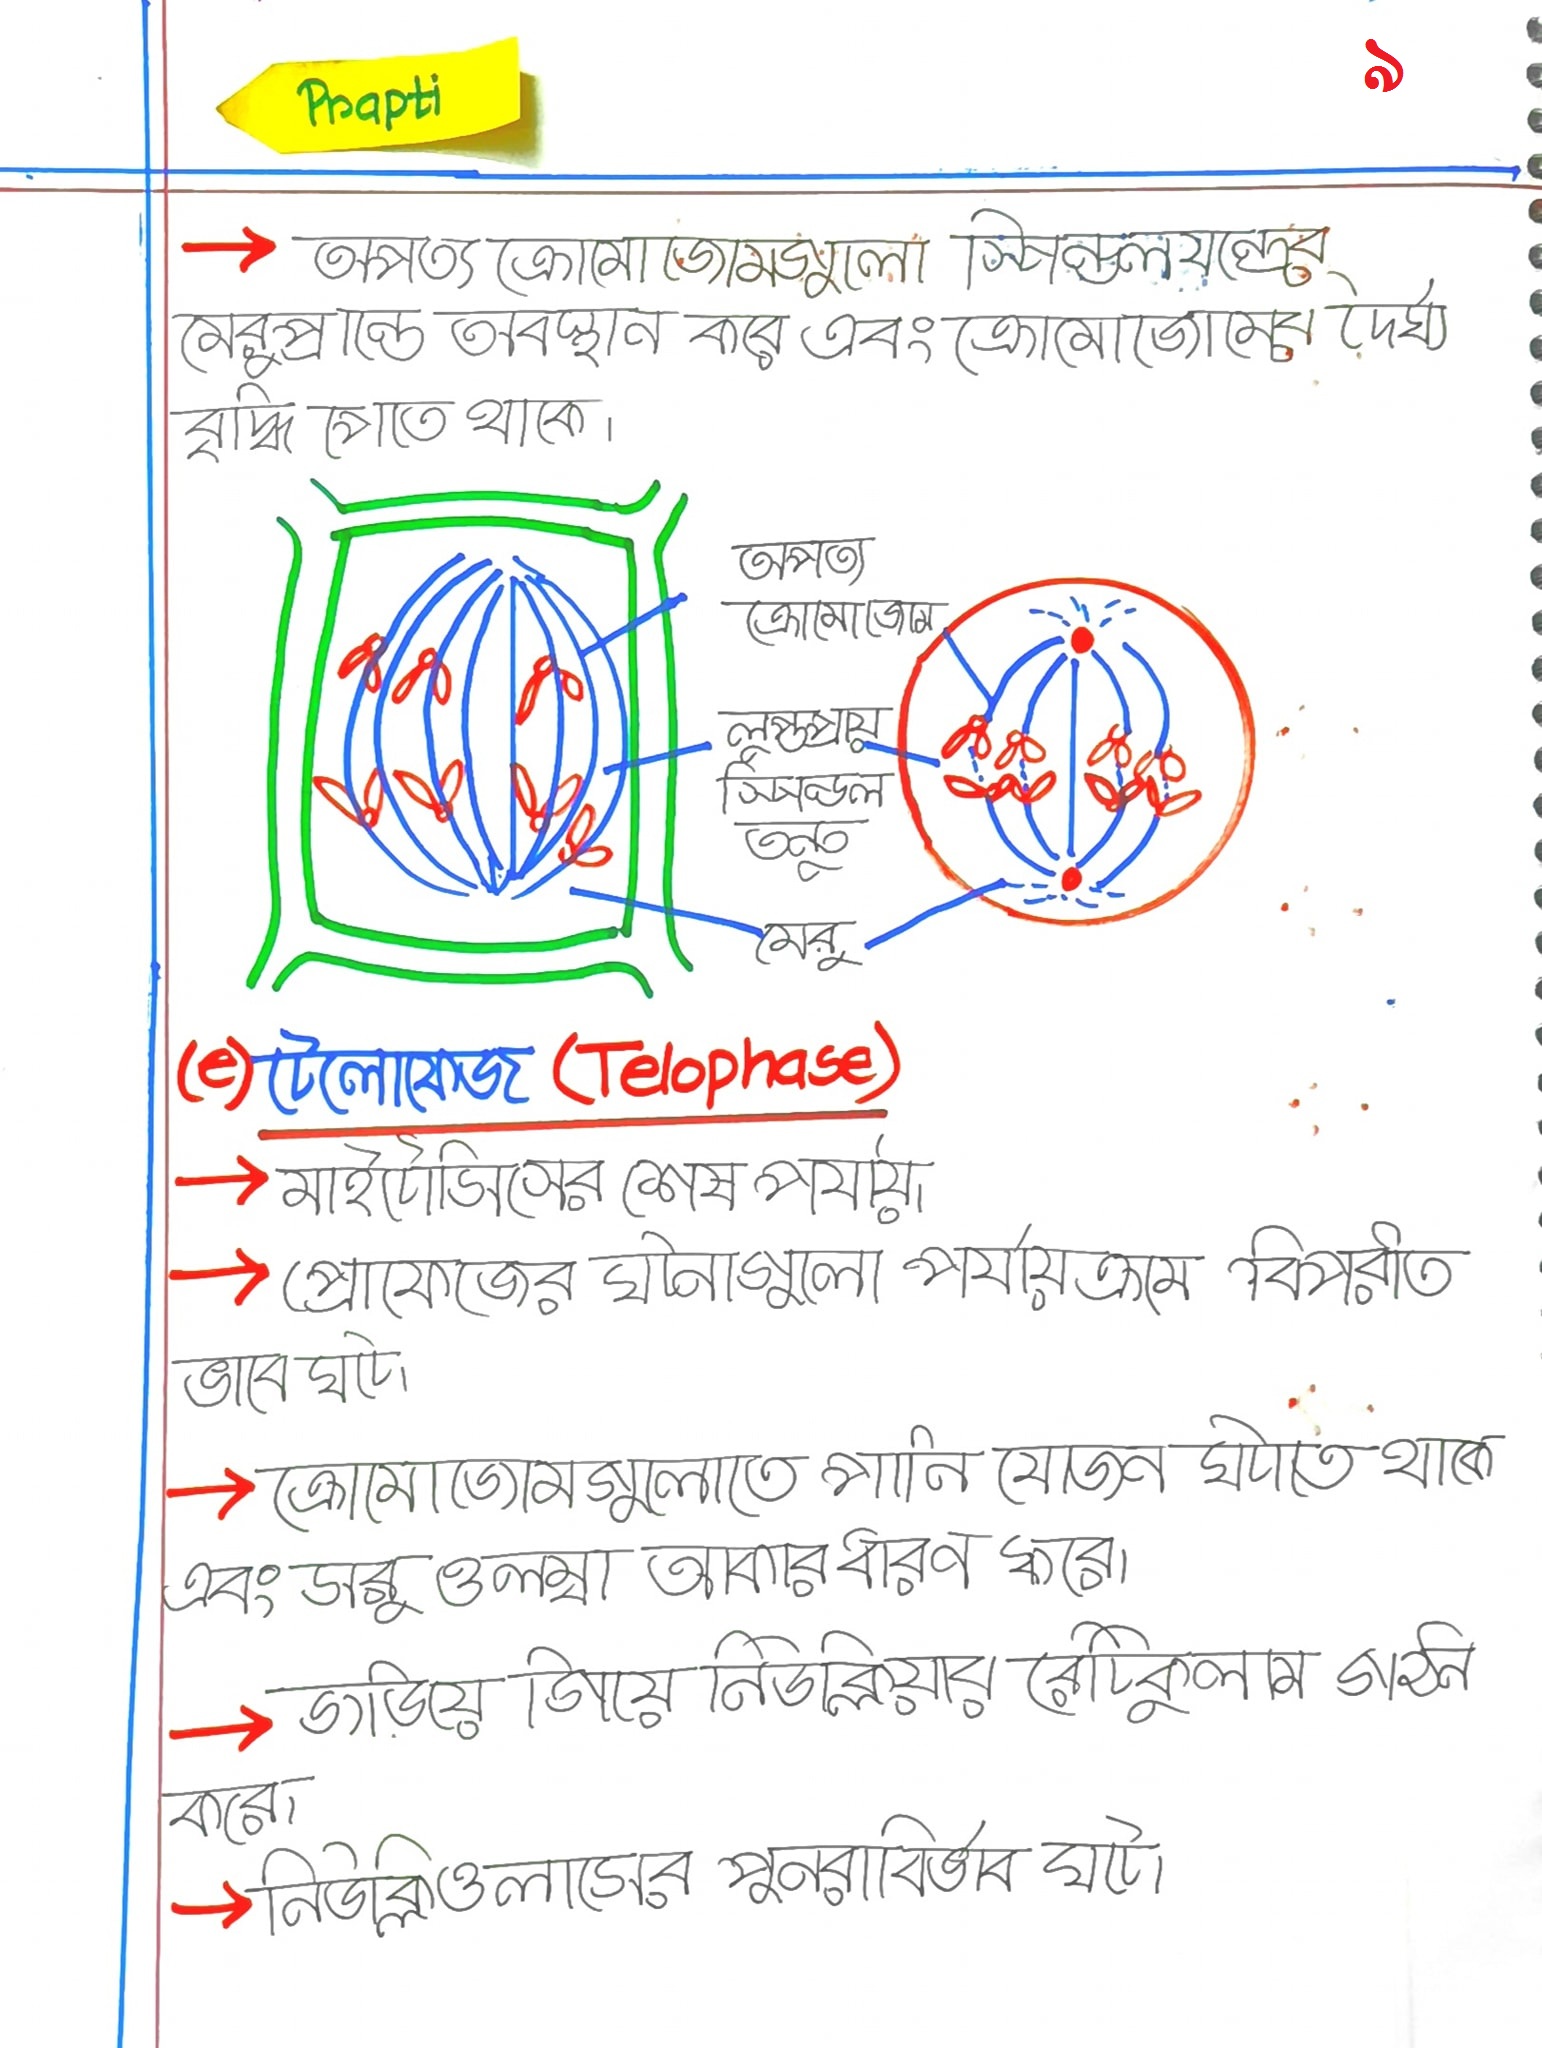 Prapti
৯
→ অপত্য ক্রোমোজোমগুলো স্পিন্ডলযন্ত্রের
মেরুপ্রান্তে অবস্থান করে এবং ক্রোমোজোমের দৈর্ঘ্য
বৃদ্ধি পেতে থাকে।
অপত্য
ক্রোমোজোম
লুপ্তপ্রায়
স্পিন্ডল
তন্তু
মেরু
(e) টেলোফেজ (Telophase)
→ মাইটোসিসের শেষ পর্যায়।
→ প্রোফেজের ঘটনাগুলো পর্যায়ক্রমে বিপরীত
ভাবে ঘটে।
→ ক্রোমোজোমগুলোতে পানি যোজন ঘটতে থাকে
এবং সরু ও লম্বা আকার ধারণ করে।
→ জড়িয়ে গিয়ে নিউক্লিয়ার রেটিকুলাম গঠন
করে।
→ নিউক্লিওলাসের পুনরাবির্ভাব ঘটে।